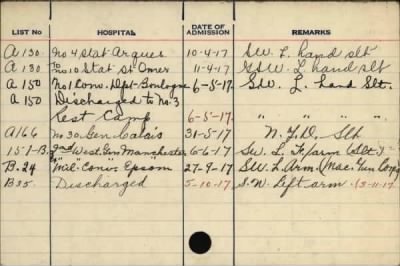 LIST NO HOSPITAL DATE OF ADMISSION REMARKS
A 130 No 4 Stat Arques 10-4-17 SW. L hand slt
A 130 To No 10 Stat St Omer 11-4-17 GSW. L hand slt
A 150 No 1 Conv. Dept-Boulogne 6-5-17 SW. L hand Slt.
A 150 Discharged to No. 3
Rest Camp 6-5-17 " " " "
A 166 No 30 Gen Calais 31-5-17 N. Y. D. Slt
151-B. 2nd West. Gen Manchester 6-6-17 Sw. L. F/arm (Slt.)
B. 24 "Mil." Conv. Epsom 27-9-17 SW. L Arm. (Mac. Gun Corps)
B 35 Discharged 5-10-17 S. W. Left arm